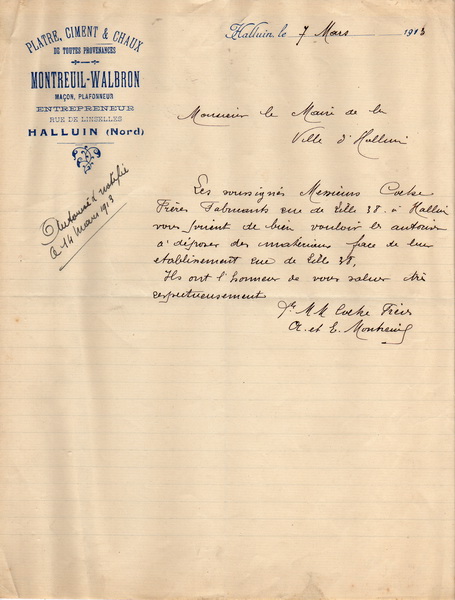 PLATRE, CIMENT & CHAUX
DE TOUTES PROVENANCES
MONTREUIL-WALBRON
MAÇON, PLAFONNEUR
ENTREPRENEUR
RUE DE LINSELLES
HALLUIN (Nord)
Halluin, le 7 Mars 1913
Monsieur le Maire de la
Ville d'Halluin
Autorisé & notifié
le 14 mars 1913
Les soussignés Messieurs
Frères Fabricants rue de Lille 38. à Halluin
vous prient de bien vouloir les autoriser
à déposer des matériaux face de leur
établissement rue de Lille 38,
Ils ont l'honneur de vous saluer très
respectueusement
Pr M M Frères
A. et E. Montreuil